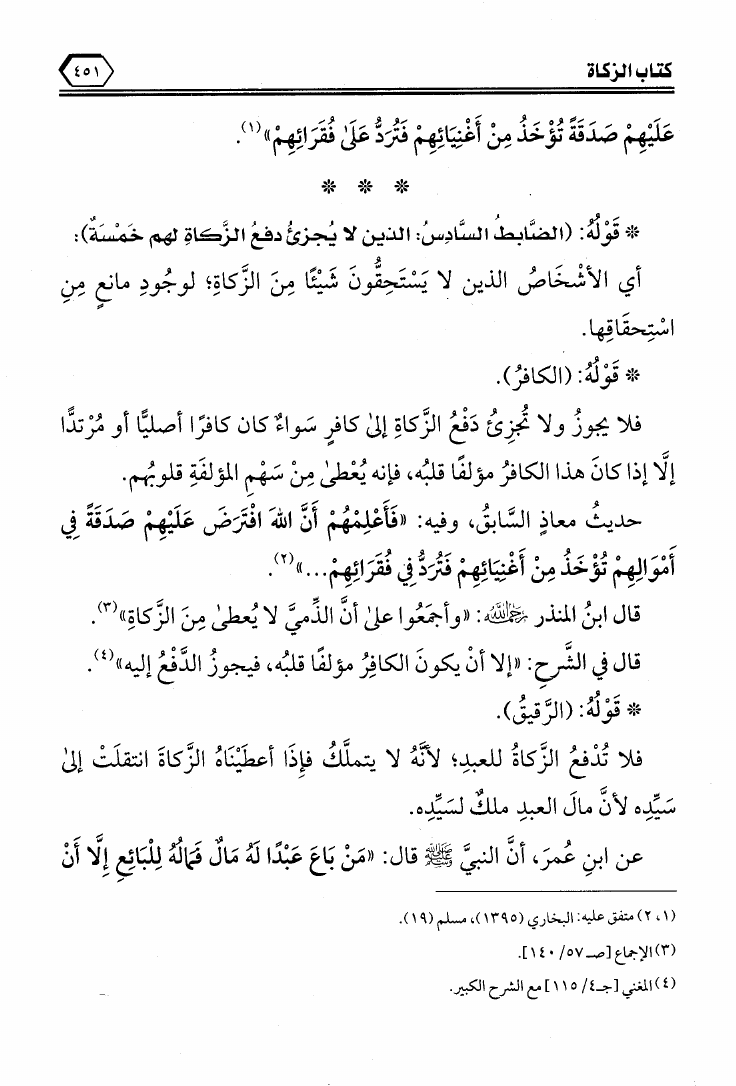 كتاب الزكاة ٤٥١
عَلَيْهِمْ صَدَقَةً تُؤْخَذُ مِنْ أَغْنِيَائِهِمْ فَتُرَدُّ عَلَىٰ فُقَرَائِهِمْ»(١).
* * *
* قَوْلُهُ: (الضَّابطُ السَّادِسُ: الذين لا يُجزئُ دفعُ الزَّكاةِ لهم خَمْسَةٌ):
أي الأشْخَاصُ الذين لا يَسْتَحِقُّونَ شَيْئًا مِنَ الزَّكاةِ؛ لوجُودِ مانعٍ مِنِ
اسْتِحقَاقِها.
* قَوْلُهُ: (الكافرُ).
فلا يجوزُ ولا تُجزِئُ دَفْعُ الزَّكاةِ إلىٰ كافرٍ سَواءٌ كان كافرًا أصليًّا أو مُرْتدًّا
إلَّا إذا كانَ هذا الكافرُ مؤلفًا قلبُه، فإنه يُعْطىٰ مِنْ سَهْمِ المؤلفَةِ قلوبُهم.
حديثُ معاذٍ السَّابقُ، وفيه: «فَأَعْلِمْهُمْ أَنَّ اللهَ افْتَرَضَ عَلَيْهِمْ صَدَقَةً فِي
أَمْوَالِهِمْ تُؤْخَذُ مِنْ أَغْنِيَائِهِمْ فَتُرَدُّ فِي فُقَرَائِهِمْ...»(٢).
قال ابنُ المنذر رحمه الله: «وأجمَعُوا علىٰ أنَّ الذِّميَّ لا يُعطىٰ مِنَ الزَّكاةِ»(٣).
قال في الشَّرحِ: «إلا أنْ يكونَ الكافِرُ مؤلفًا قلبُه، فيجوزُ الدَّفْعُ إليه»(٤).
* قَوْلُهُ: (الرَّقيقُ).
فلا تُدْفعُ الزَّكاةُ للعبدِ؛ لأنَّهُ لا يتملَّكُ فإِذَا أعطَيْنَاهُ الزَّكاةَ انتقلَتْ إلىٰ
سَيِّدِه لأنَّ مالَ العبدِ ملكٌ لسَيِّدِه.
عن ابنِ عُمرَ، أنَّ النبيَّ ﷺ قال: «مَنْ بَاعَ عَبْدًا لَهُ مَالٌ فَمَالُهُ لِلْبَائِعِ إِلَّا أَنْ
(١، ٢) متفق عليه: البخاري (١٣٩٥)، مسلم (١٩).
(٣) الإجماع [صـ ٥٧/ ١٤٠].
(٤) المغني [جـ٤/ ١١٥] مع الشرح الكبير.